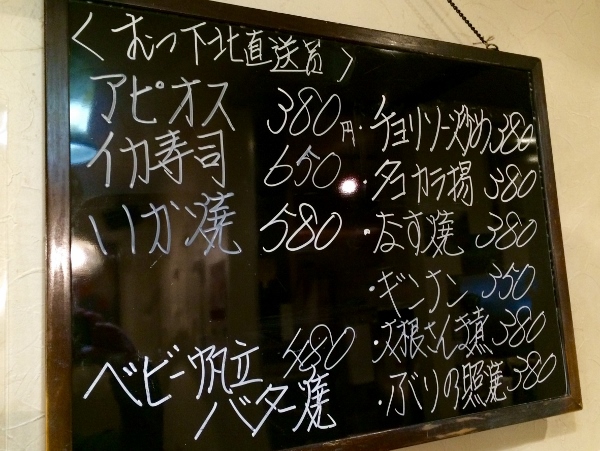 〈むつ下北直送品〉
アピオス 380円
イカ寿司 650
いか焼 580
ベビー帆立バター焼 580
・チョリソー炒め 380
・タコカラ揚 380
・なす焼 380
・ギンナン 350
・大根さんま煮 380
・ぶりの照焼 380